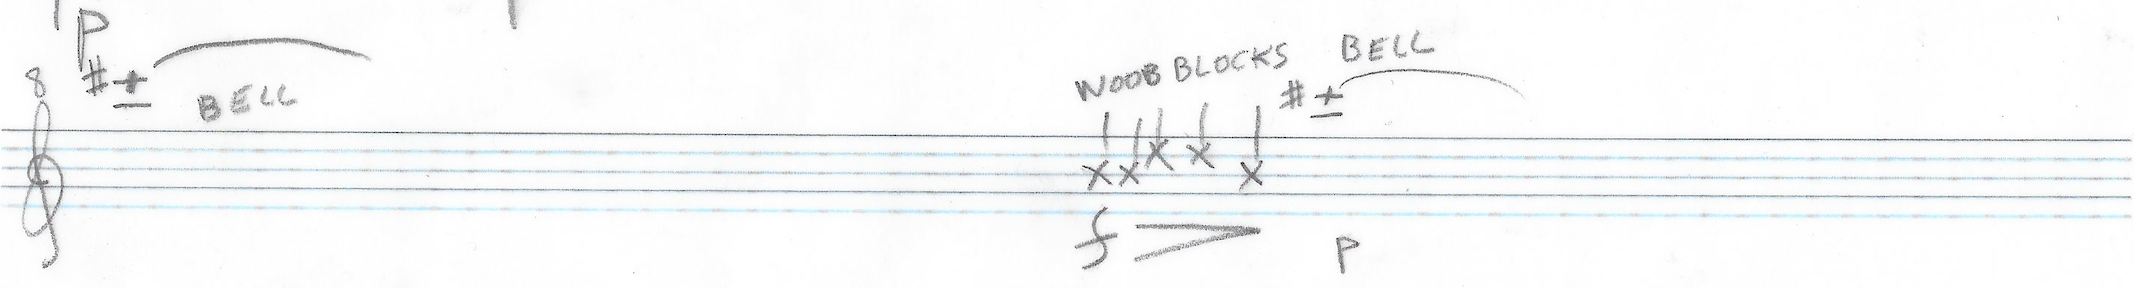 p
8
BELL
WOOD BLOCKS
BELL
f
p